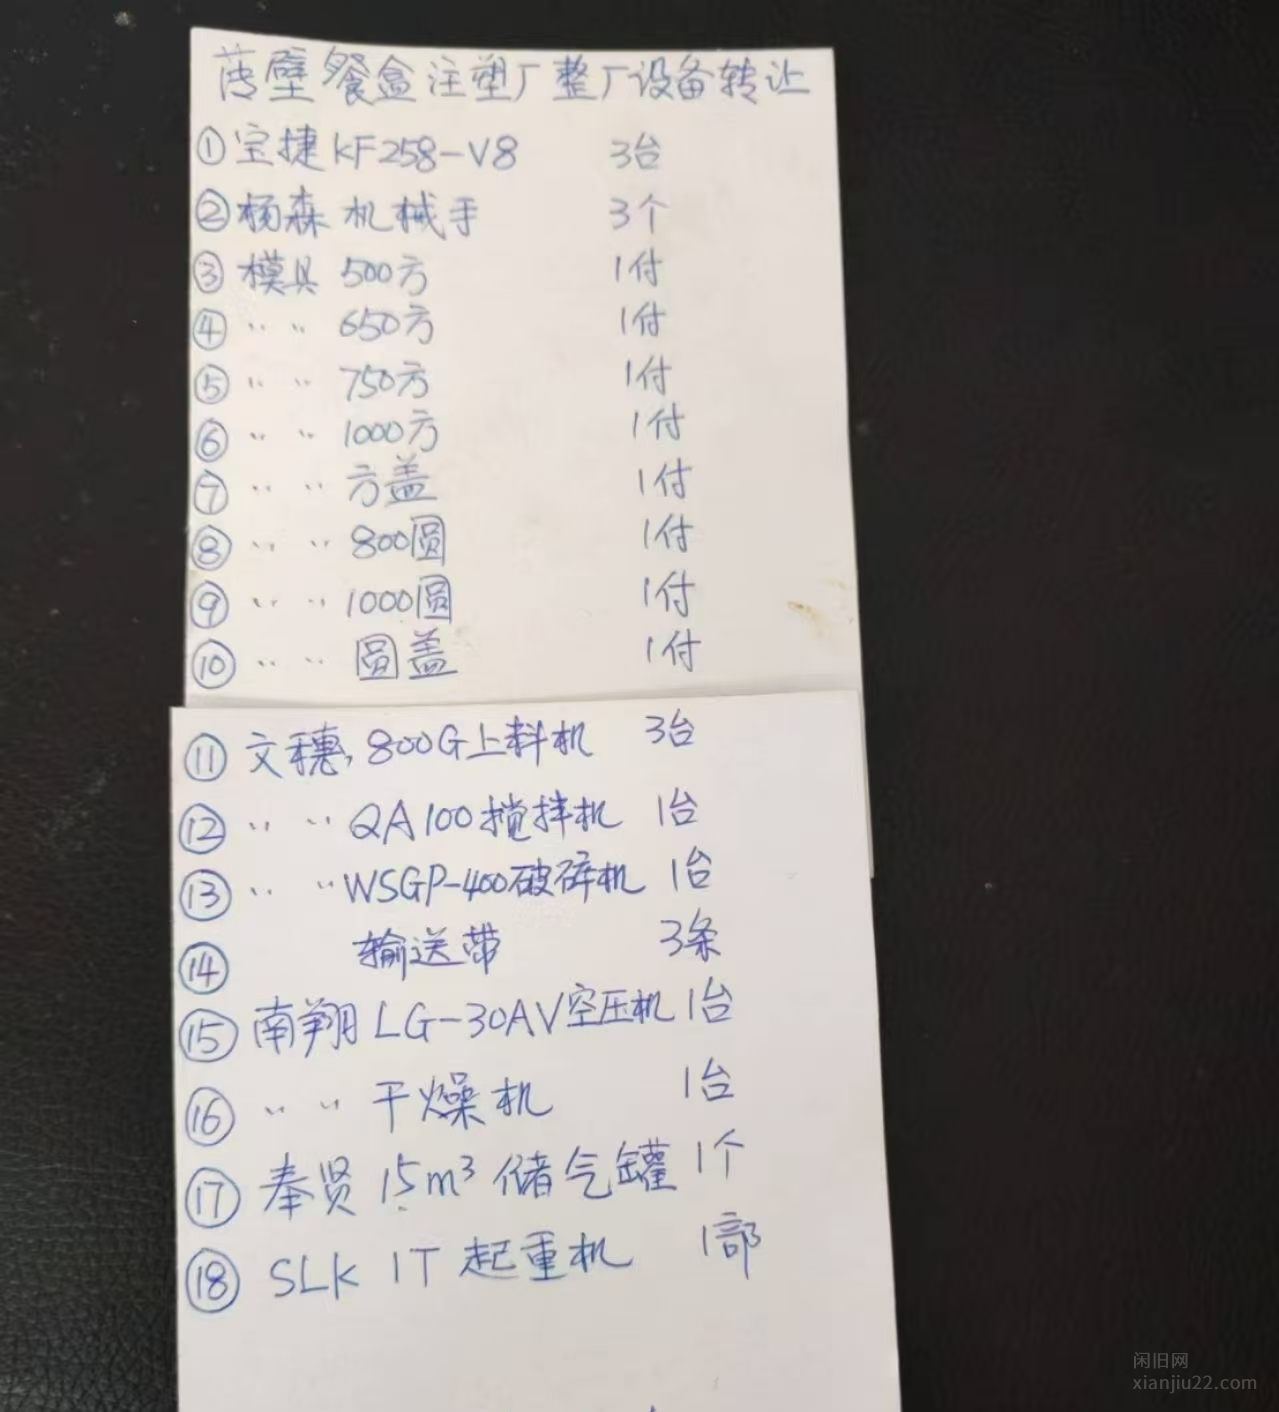 薄壁餐盒注塑厂整厂设备转让
①宝捷KF258-V8 3台
②杨森机械手 3个
③模具 500方 1付
④ 〃 〃 650方 1付
⑤ 〃 〃 750方 1付
⑥ 〃 〃 1000方 1付
⑦ 〃 〃 方盖 1付
⑧ 〃 〃 800圆 1付
⑨ 〃 〃 1000圆 1付
⑩ 〃 〃 圆盖 1付
⑪ 文穗,800G上料机 3台
⑫ 〃 〃 QA100搅拌机 1台
⑬ 〃 〃 WSGP-400破碎机 1台
⑭ 输送带 3条
⑮ 南翔 LG-30AV空压机 1台
⑯ 〃 〃 干燥机 1台
⑰ 奉贤 1.5m³ 储气罐 1个
⑱ SLK 1T 起重机 1部
闲旧网
xianjiu22.com